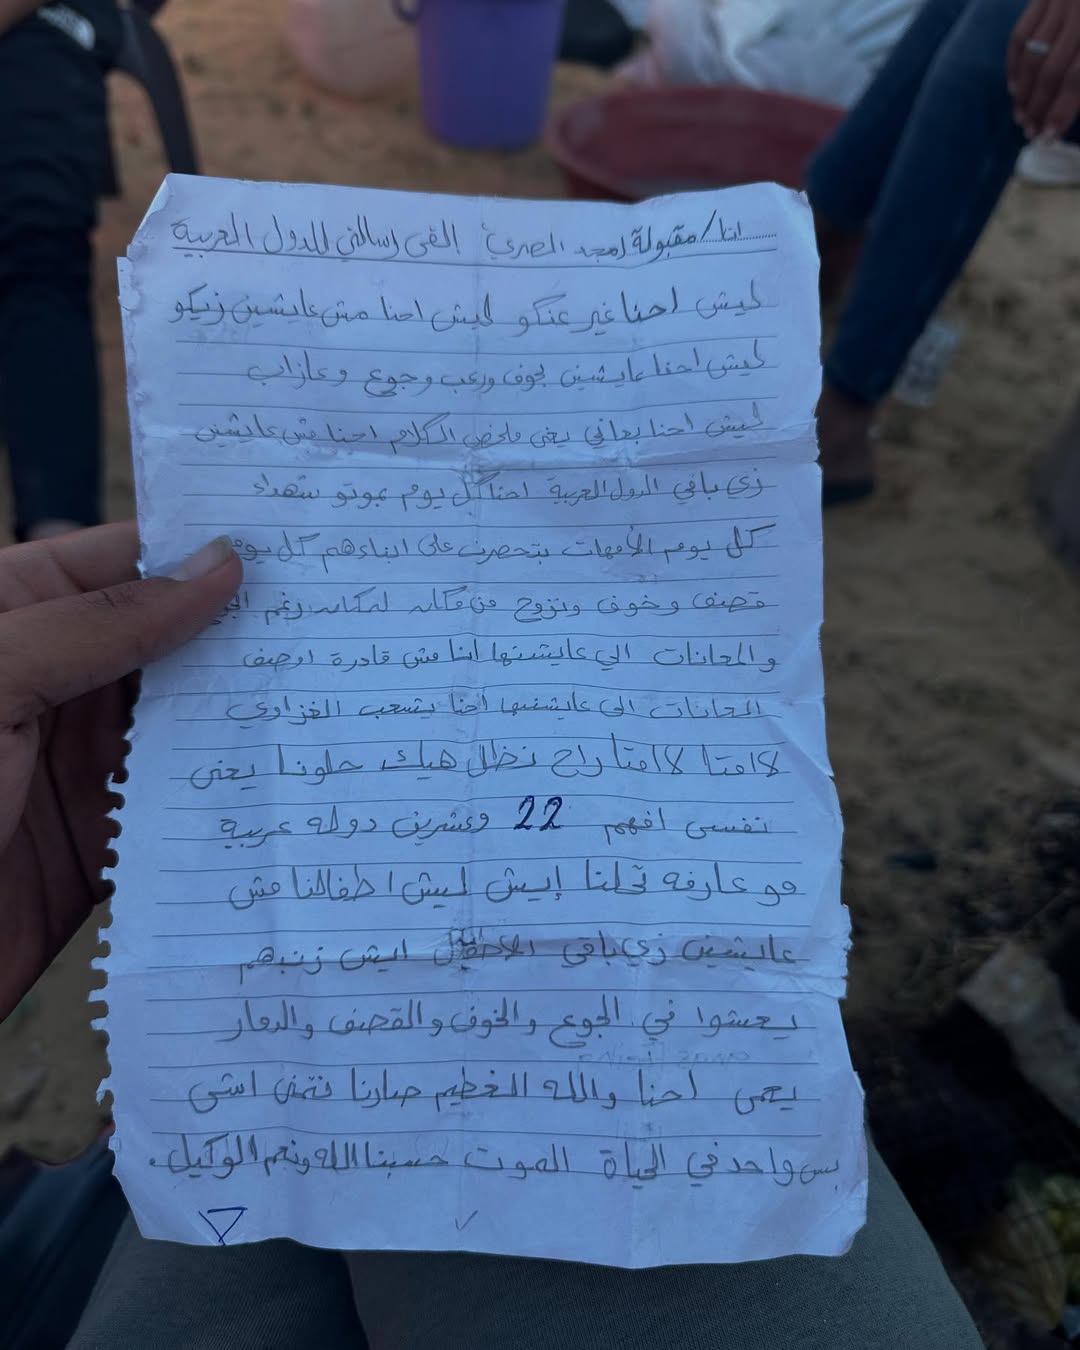 انا/مقبولة امجد المصري القى رسالتي للدول العربية
ليش احنا غير عنكو ليش احنا مش عايشين زيكو
ليش احنا عايشين بخوف ورعب وجوع وعازاب
ليش احنا بعاني يعني ملخص الكلام احنا مش عايشين
زي باقي الدول العربية احنا كل يوم بموتو شهداء
كل يوم الأمهات بتحصرت على ابناءهم كل يوم
قصف وخوف ونزوح من مكان لمكان رغم
والمعانات الي عايشنها انا مش قادرة اوصف
المعانات الى عايشنها احنا بشعب الغزاوي
لاامتا لاامتا راح نظل هيك حلونا يعنى
نفسى افهم 22 وعشرين دوله عربية
مو عارفه تحلنا إيش ليش اطفالنا مش
عايشين زي باقي الاطفال ايش زنبهم
يعيشوا في الجوع والخوف والقصف والدمار
يعى احنا والله العظيم صارنا نتمنى اشى
بس واحد في الحياة الموت حسبنا الله ونعم الوكيل.